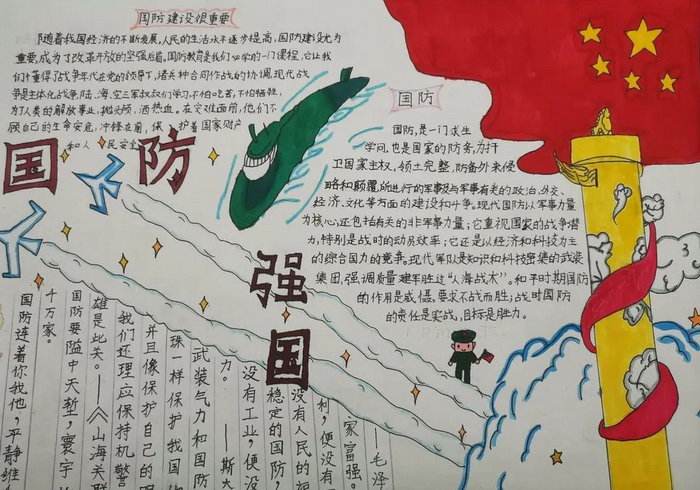 国防建设很重要
随着我国经济的不断发展,人民的生活水平逐步提高,国防建设尤为
重要,成为了改革开放的坚强后盾。国防教育是我们必学的一门课程,它让我
们懂得了战争年代在党的领导下,诸兵种合同作战的协调。现代战
争是主体化战争,陆、海、空三军叔叔们学习,不怕吃苦,不怕牺牲,
为了人类的解放事业,抛头颅,洒热血。在灾难面前,他们不
顾自己的生命安危,冲锋在前,保护着国家财产
和人民安全
国防
国防,是一门求生
学问,也是国家的防务,为捍
卫国家主权,领土完整,防备外来侵
略和颠覆,所进行的军事及与军事有关的政治、外交、
经济、文化等方面的建设和斗争。现代国防以军事力量
为核心,还包括有关的非军事力量;它重视国家的战争潜
力,特别是战时的动员效率;它还是以经济和科技为主
的综合国力的竞争。现代军队是知识和科技密集的武装
集团,强调质量建军胜过“人海战术”。和平时期国防
的作用是威慑,要求不战而胜;战时国防
的责任是实战,目标是胜力。
国防
强国
——毛泽
家富强。
利,便没有
没有人民的
稳定的国防,
没有工业,便没
力。——斯大
武装气力和国防
珠一样保护我国
并且像保护自己的眼
我们还理应保持机警
雄是此关。——《山海关联
国防要隘中天堑,寰宇
千万家。
国防连着你我他,平静维